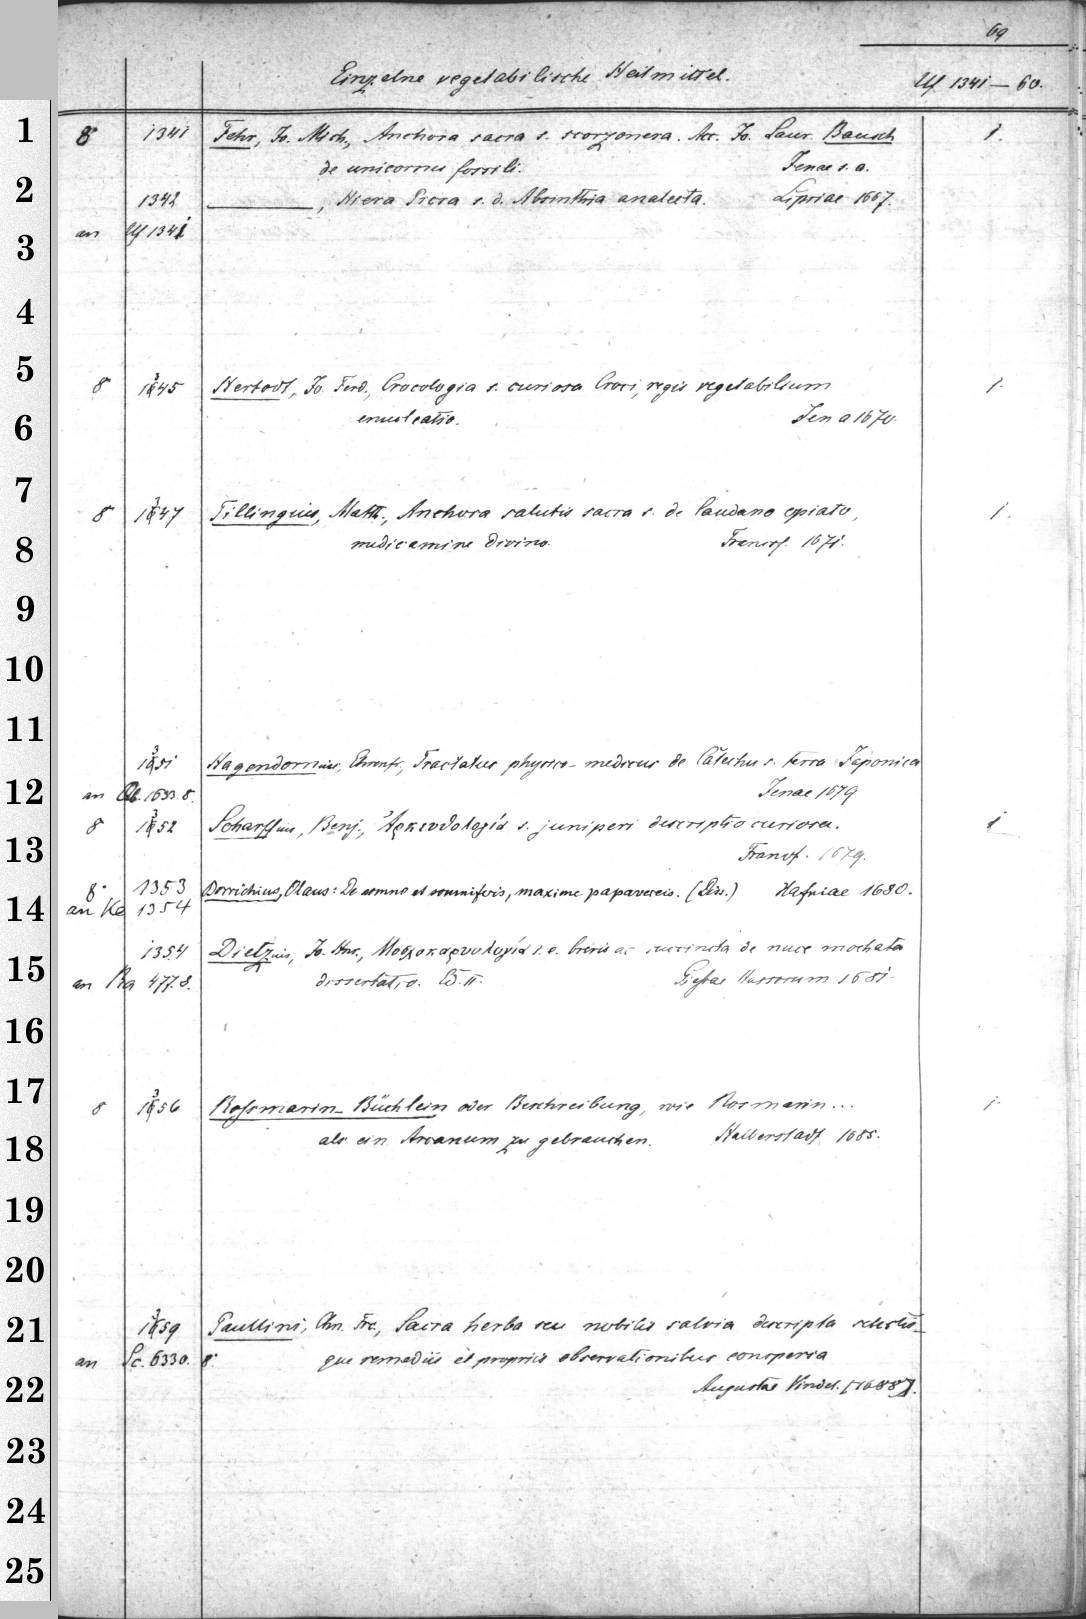 69
Einzelne vegetabilische Heilmittel. Uf 1341—60.
8° 1341 Fehr, Jo. Mich., Anchora sacra s. scorzonera. Acc. Jo. Laur. Bausch 1.
de unicornu fossili. Jenae s. a.
1342 ———, Hiera Picra s. d. Absinthia analecta. Lipsiae 1667.
an Uf 1341
8° 1345 Hertodt, Jo. Ferd., Crocologia s. curiosa Croci, regis vegetabilium 1.
enucleatio. Jena 1670.
8° 1347 Tillingius, Matth., Anchora salutis sacra s. de laudano opiato, 1.
medicamine divino. Francof. 1671.
1351 Hagendornius, Ehrenfr., Tractatus physico-medicus de Catechu s. terra Japonica
an Ob. 1633. 8. Jenae 1679
8 1352 Scharffius, Benj., Ἀρκευθολογία s. juniperi descriptio curiosa. 1
Francf. 1679.
8° 1353 Borrichius, Olaus: De somno et somniferis, maxime papavereis. (Diss.) Hafniae 1680.
an Ka 1354
1354 Dietzius, Jo. Hnr., Μοσχοκαρυολογία s. e. brevis ac succincta de nuce moschata
an Ra 477. 8. dissertatio. Ed. II. Giessae Hassorum 1681.
8 1356 Rossmarin-Büchlein oder Beschreibung, wie Rosmarin... 1.
als ein Arcanum zu gebrauchen. Halberstadt 1685.
1359 Paullini, Chn. Frc., Sacra herba seu nobilis salvia descripta selectis-
an Sc. 6330. 8° que remediis et propriis observationibus conspersa
Augustae Vindel. [1688].
1
2
3
4
5
6
7
8
9
10
11
12
13
14
15
16
17
18
19
20
21
22
23
24
25